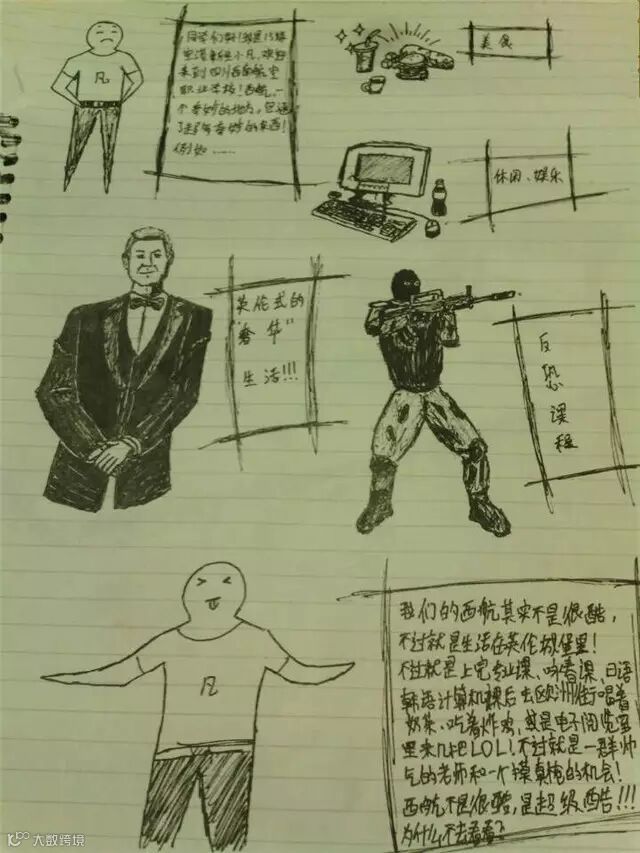 凡
同学们好！我是15级
空港集组小凡,欢迎
来到四川西南航空
职业学校！西航,一
个奇妙的地方,包涵
了超多奇妙的东西！
例如……
美食
休闲、娱乐
英伦式的
"奢华"
生活!!!
反
恐
课
程
凡
我们的西航其实不是很酷，
不过就是生活在英伦城堡里！
不过就是上完专业课、咖啡课、日语
韩语计算机课后去欧洲街喝着
奶茶、吃着炸鸡,或是电子阅览室
里来几把LOL！不过就是一群帅
气的老师和一个摸真枪的机会！
西航不是很酷,是超级酷!!!
为什么不去看看？
大数跨境